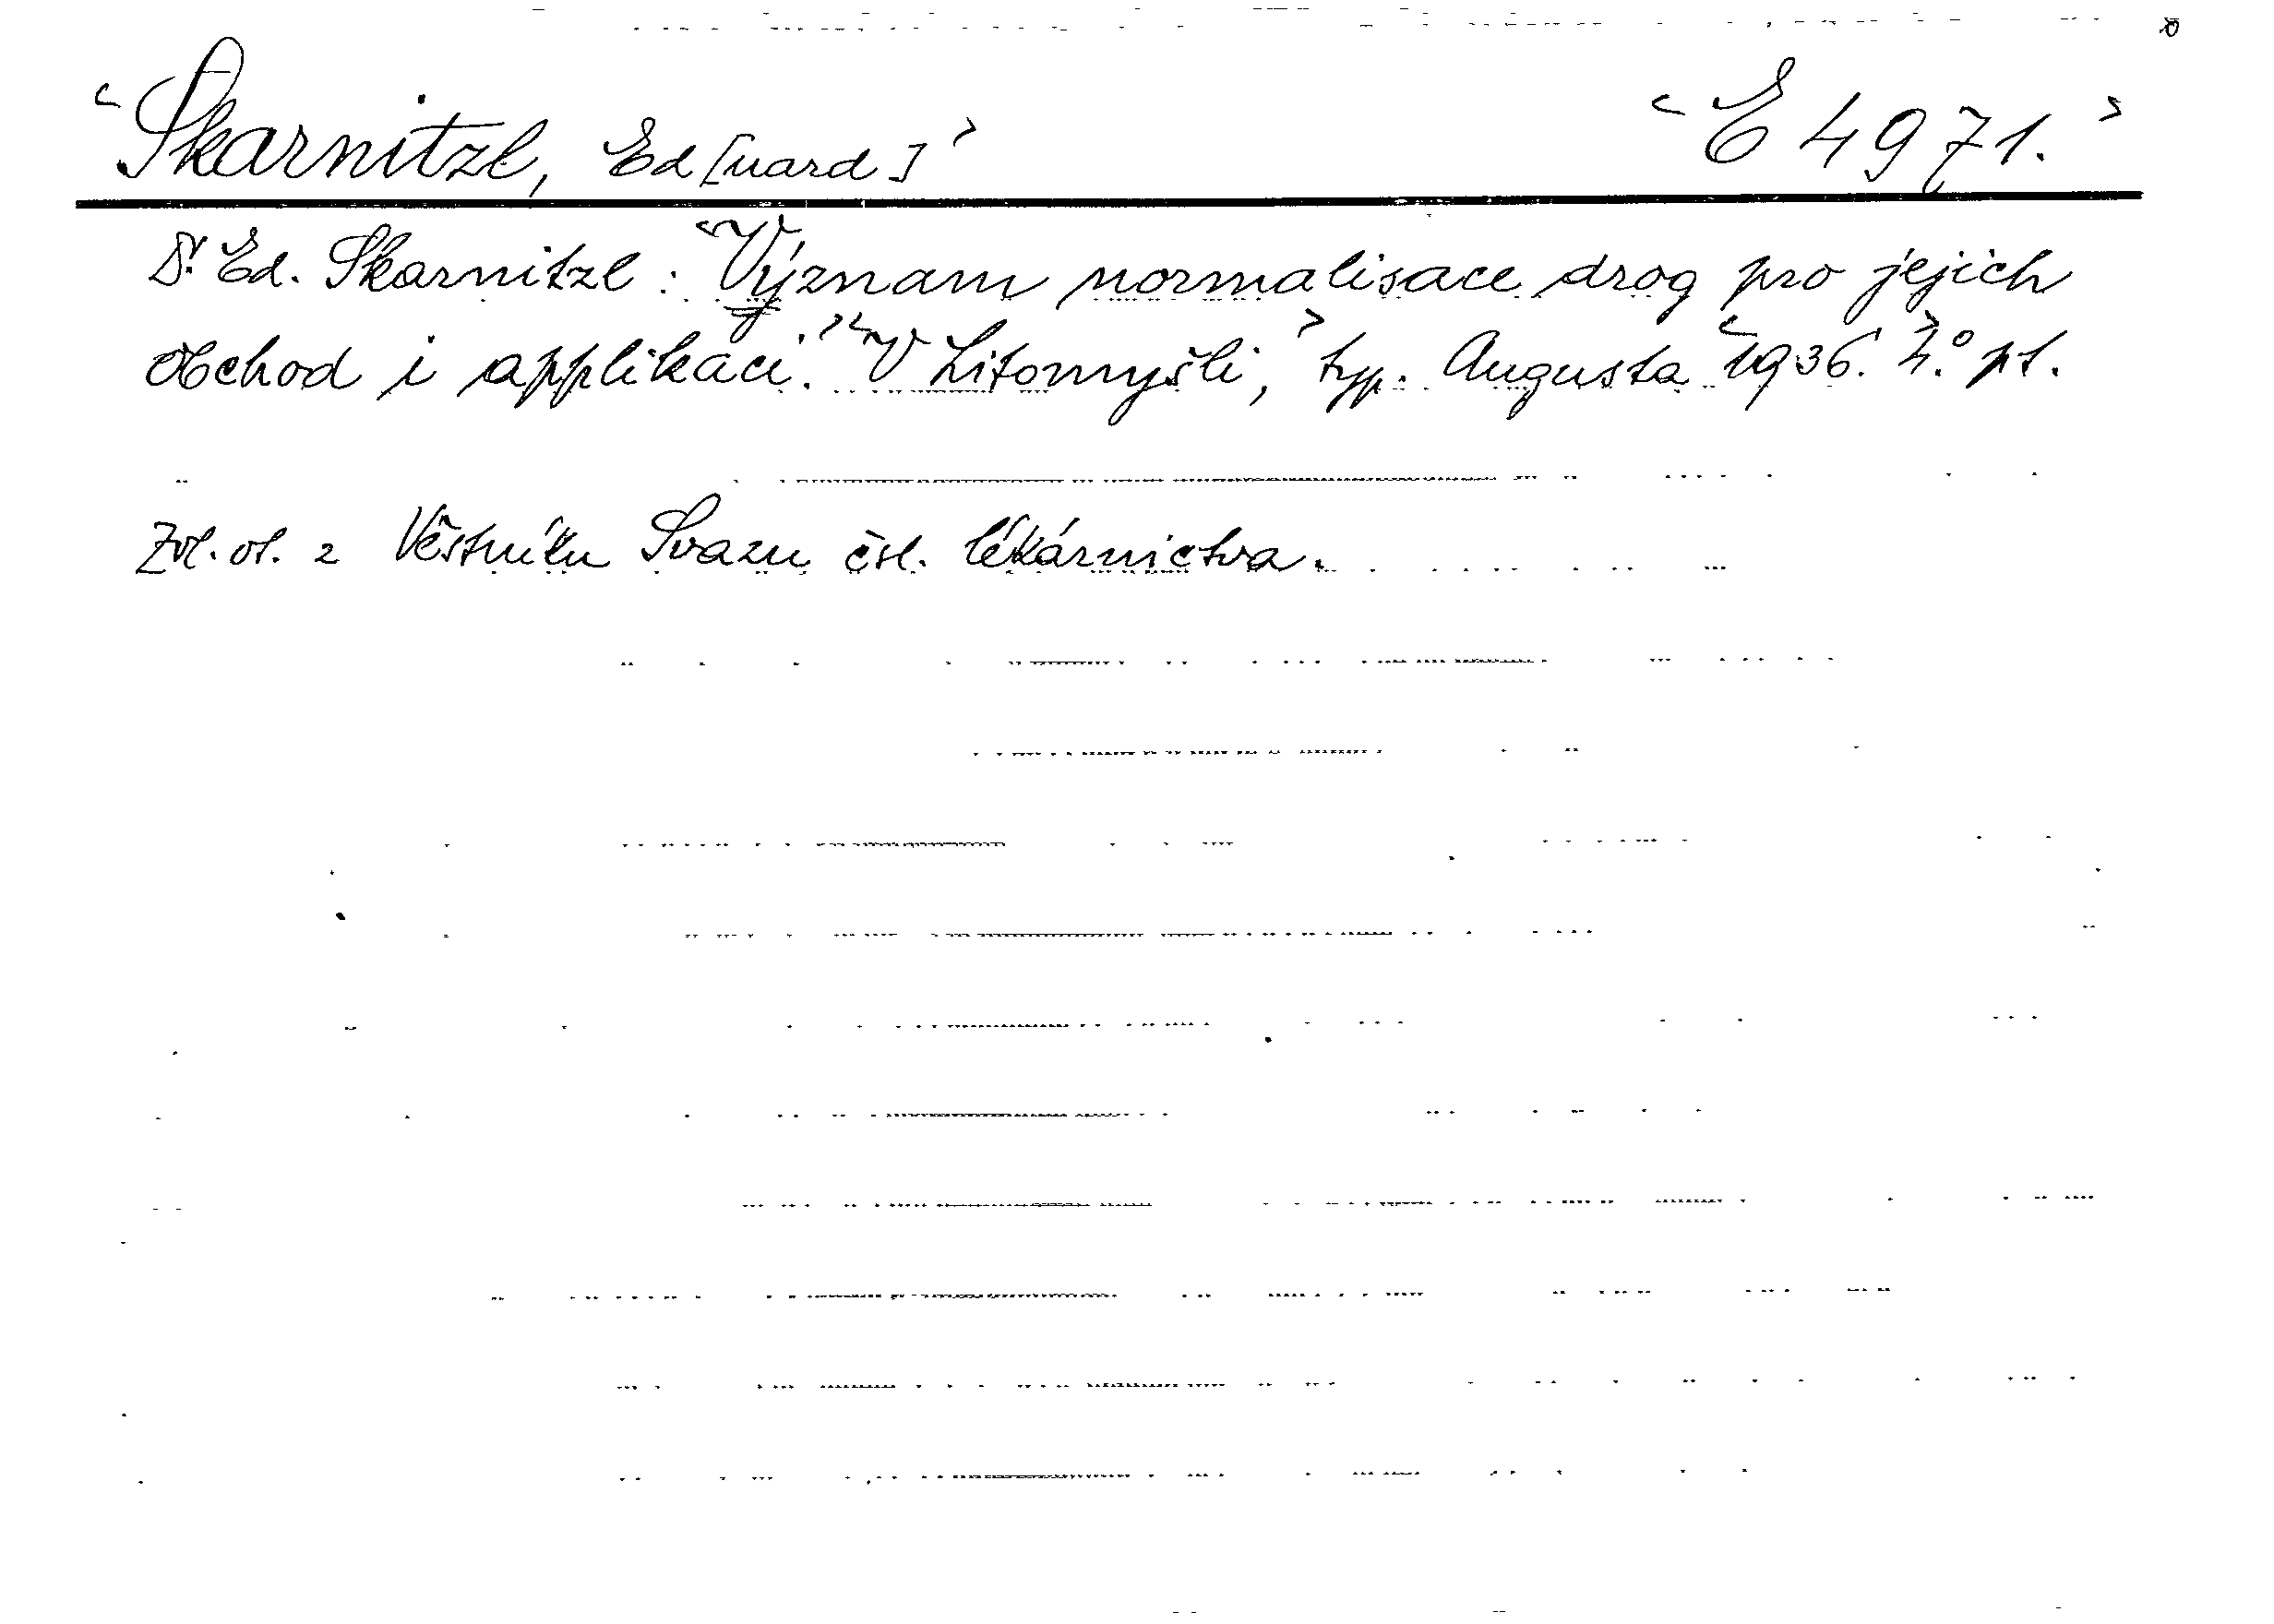 <Skarnitzl, Ed[uard]> <E 4971.>
Dr. Ed. Skarnitzl: <Význam normalisace drog pro jejich
obchod i applikaci.> <V Litomyšli,> typ. Augusta <1936.> 4.° pt.
Zvl. ot. z Věstníku Svazu čsl. lékárnictva.